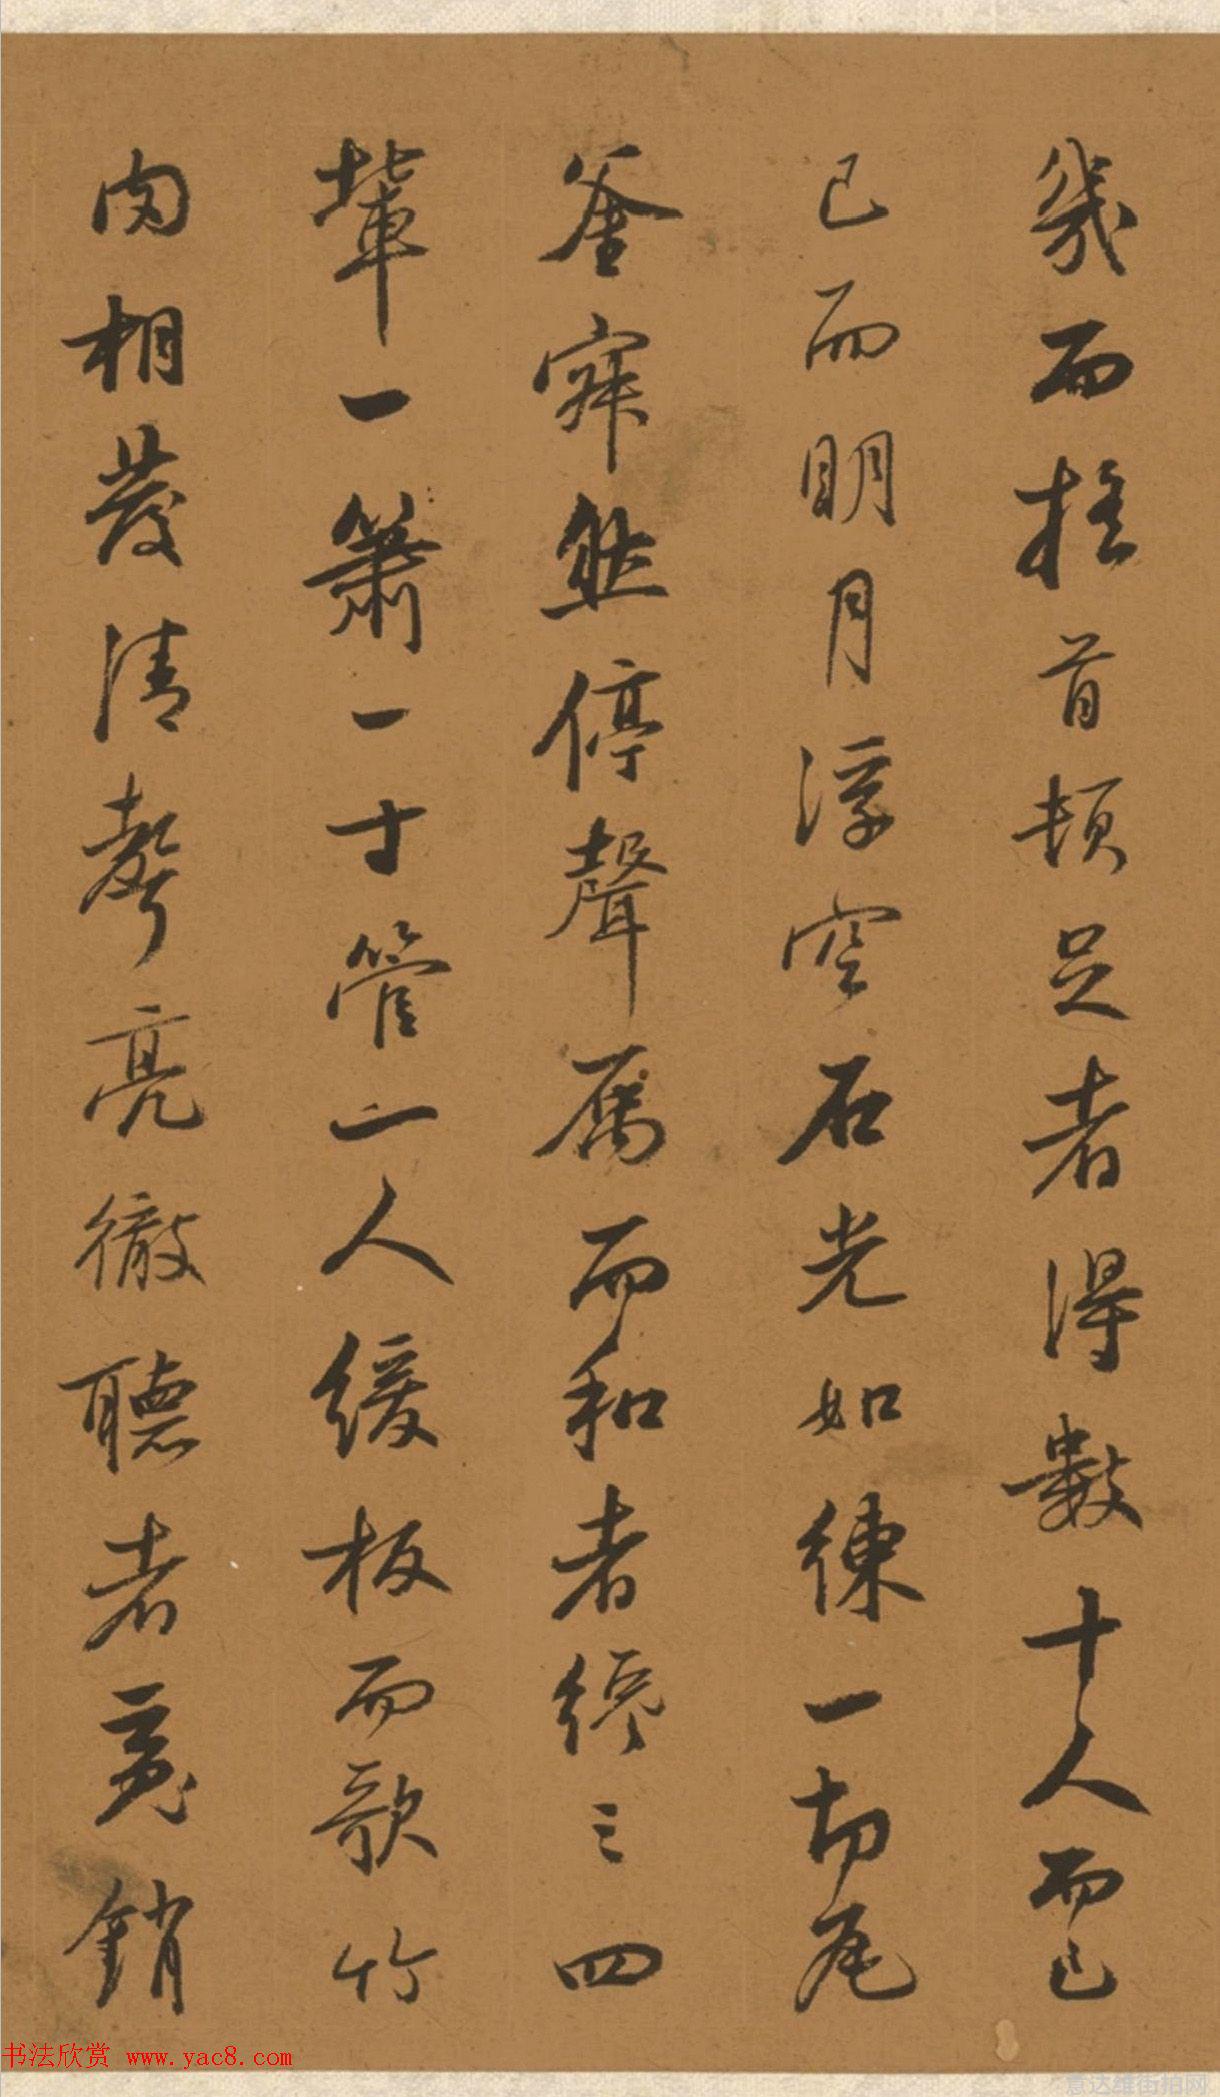 幾而搖首頓足者得數十人而已
已而明月浮空石光如練一切尾
釜寂然停聲属而和者纔三四
輩一簫一寸管一人緩板而歌竹
肉相發清聲亮徹聽者意銷
书法欣赏 www.yac8.com